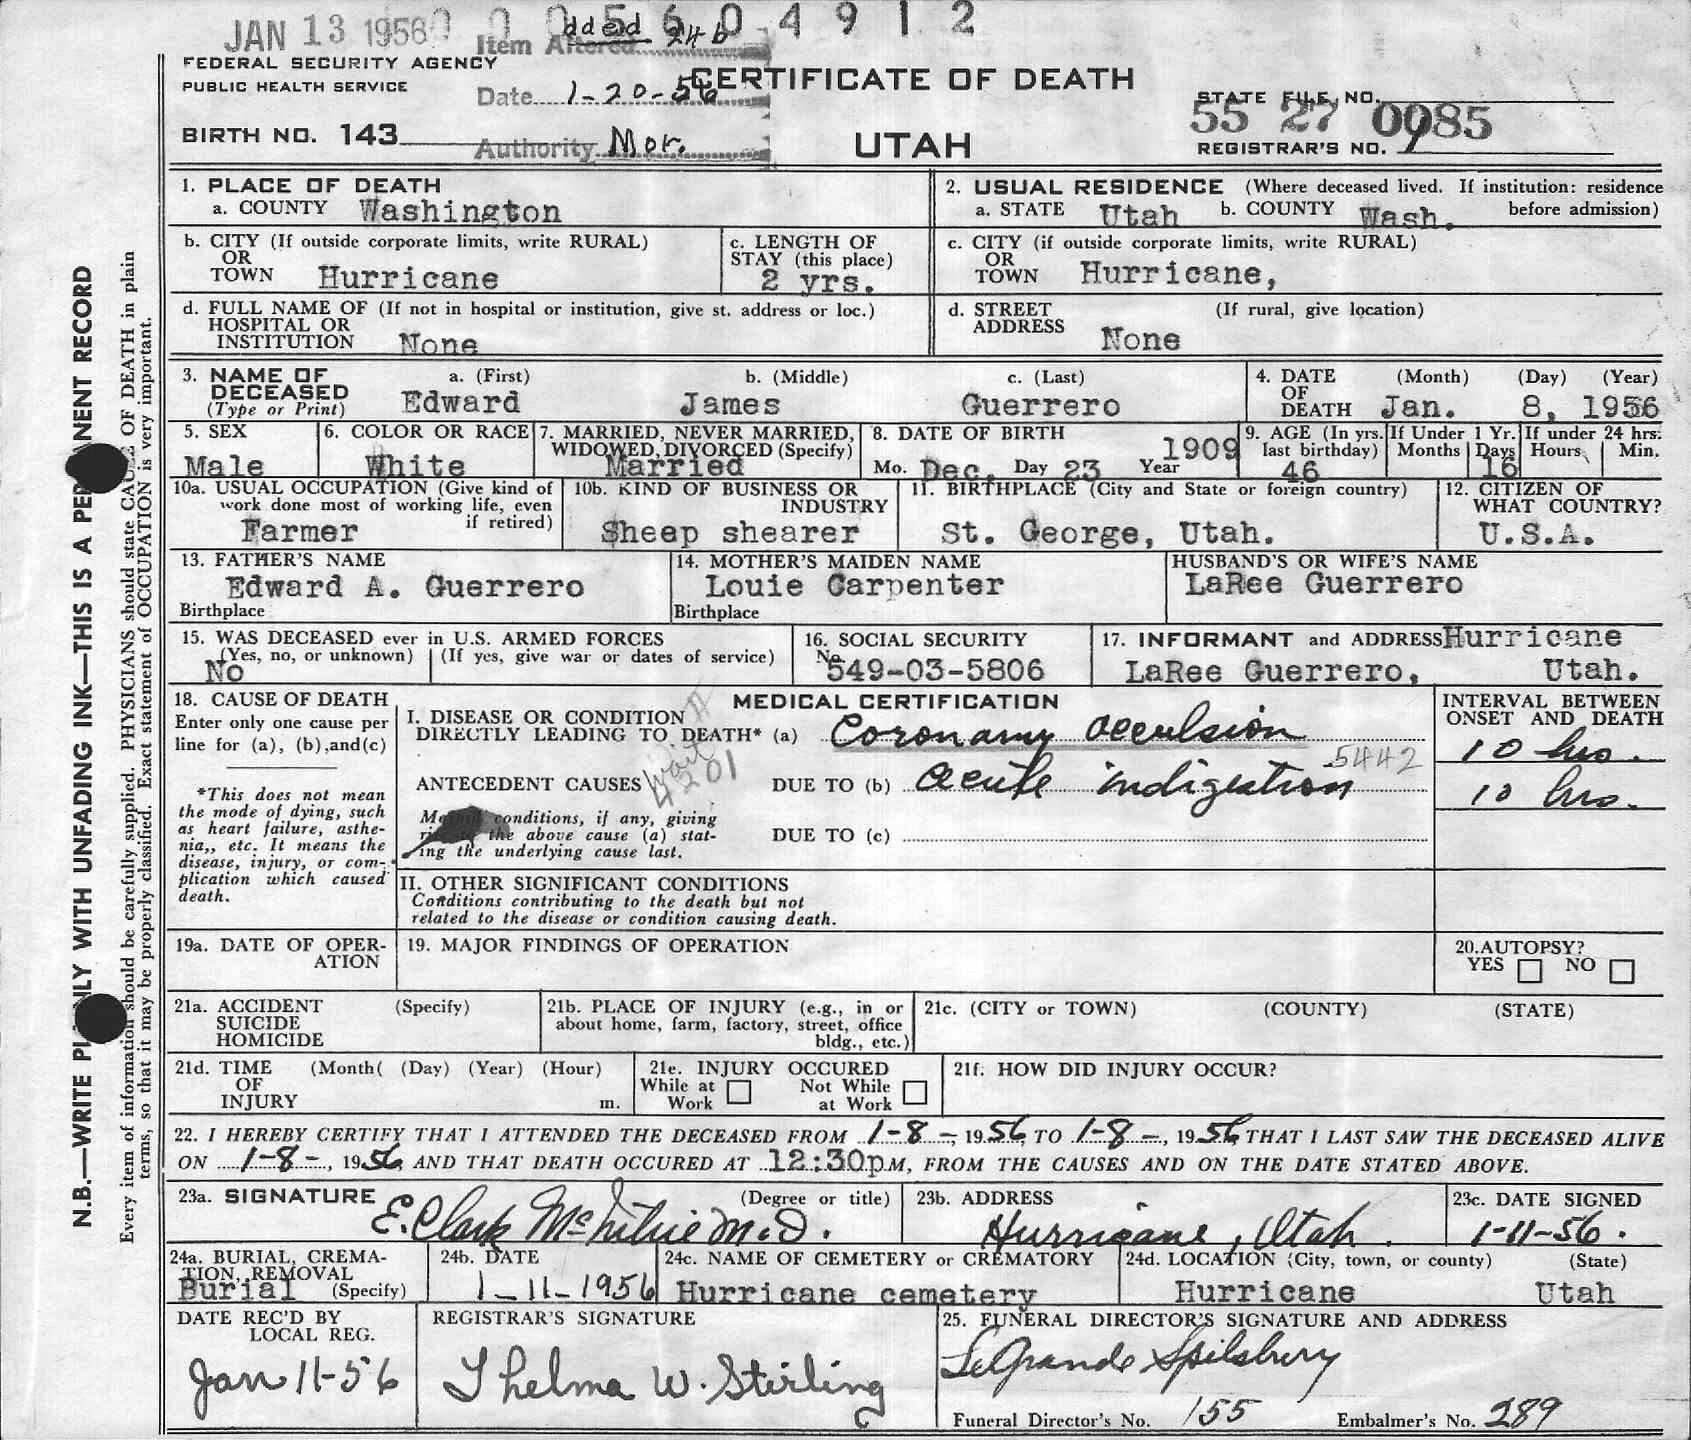 JAN 13 1956 0 0 0 5 6 0 4 9 1 2
Item Altered added 24b
FEDERAL SECURITY AGENCY
PUBLIC HEALTH SERVICE
Date 1-20-56
CERTIFICATE OF DEATH
STATE FILE NO.
55 27 0085
BIRTH NO. 143
Authority Mor.
UTAH
REGISTRAR'S NO. 1
1. PLACE OF DEATH
a. COUNTY Washington
2. USUAL RESIDENCE (Where deceased lived. If institution: residence before admission)
a. STATE Utah b. COUNTY Wash.
b. CITY (If outside corporate limits, write RURAL)
OR
TOWN Hurricane
c. LENGTH OF
STAY (this place)
2 yrs.
c. CITY (if outside corporate limits, write RURAL)
OR
TOWN Hurricane,
d. FULL NAME OF (If not in hospital or institution, give st. address or loc.)
HOSPITAL OR
INSTITUTION None
d. STREET (If rural, give location)
ADDRESS None
3. NAME OF DECEASED
(Type or Print)
a. (First) b. (Middle) c. (Last)
Edward James Guerrero
4. DATE OF DEATH (Month) (Day) (Year)
Jan. 8, 1956
5. SEX
Male
6. COLOR OR RACE
White
7. MARRIED, NEVER MARRIED,
WIDOWED, DIVORCED (Specify)
Married
8. DATE OF BIRTH
Mo. Dec. Day 23 Year 1909
9. AGE (In yrs. last birthday)
46
If Under 1 Yr.
Months Days
16
If under 24 hrs.
Hours Min.
10a. USUAL OCCUPATION (Give kind of
work done most of working life, even
if retired)
Farmer
10b. KIND OF BUSINESS OR
INDUSTRY
Sheep shearer
11. BIRTHPLACE (City and State or foreign country)
St. George, Utah.
12. CITIZEN OF
WHAT COUNTRY?
U.S.A.
13. FATHER'S NAME
Edward A. Guerrero
Birthplace
14. MOTHER'S MAIDEN NAME
Louie Carpenter
Birthplace
HUSBAND'S OR WIFE'S NAME
LaRee Guerrero
15. WAS DECEASED ever in U.S. ARMED FORCES
(Yes, no, or unknown) (If yes, give war or dates of service)
No
16. SOCIAL SECURITY
No. 549-03-5806
17. INFORMANT and ADDRESS Hurricane
LaRee Guerrero, Utah.
18. CAUSE OF DEATH
Enter only one cause per
line for (a), (b), and (c)
*This does not mean
the mode of dying, such
as heart failure, asthe-
nia,, etc. It means the
disease, injury, or com-
plication which caused
death.
MEDICAL CERTIFICATION
I. DISEASE OR CONDITION
DIRECTLY LEADING TO DEATH* (a) Coronamy occulsion
ANTECEDENT CAUSES
4201
5442
DUE TO (b) accute indigestion
conditions, if any, giving
the above cause (a) stat-
ing the underlying cause last.
DUE TO (c)
INTERVAL BETWEEN
ONSET AND DEATH
10 hrs.
10 hrs.
II. OTHER SIGNIFICANT CONDITIONS
Conditions contributing to the death but not
related to the disease or condition causing death.
19a. DATE OF OPER-
ATION
19. MAJOR FINDINGS OF OPERATION
20. AUTOPSY?
YES NO
21a. ACCIDENT (Specify)
SUICIDE
HOMICIDE
21b. PLACE OF INJURY (e.g., in or
about home, farm, factory, street, office
bldg., etc.)
21c. (CITY or TOWN) (COUNTY) (STATE)
21d. TIME (Month( (Day) (Year) (Hour)
OF
INJURY m.
21e. INJURY OCCURED
While at Work Not While at Work
21f. HOW DID INJURY OCCUR?
22. I HEREBY CERTIFY THAT I ATTENDED THE DECEASED FROM 1-8-, 1956 TO 1-8-, 1956 THAT I LAST SAW THE DECEASED ALIVE
ON 1-8-, 1956 AND THAT DEATH OCCURED AT 12:30pM, FROM THE CAUSES AND ON THE DATE STATED ABOVE.
23a. SIGNATURE (Degree or title)
E. Clark McIntire M.D.
23b. ADDRESS
Hurricane, Utah.
23c. DATE SIGNED
1-11-56.
24a. BURIAL, CREMA-
TION, REMOVAL
(Specify)
Burial
24b. DATE
1-11-1956
24c. NAME OF CEMETERY or CREMATORY
Hurricane cemetery
24d. LOCATION (City, town, or county) (State)
Hurricane Utah
DATE REC'D BY
LOCAL REG.
Jan 11-56
REGISTRAR'S SIGNATURE
Thelma W. Stirling
25. FUNERAL DIRECTOR'S SIGNATURE AND ADDRESS
LeGrande Spilsbury
Funeral Director's No. 155 Embalmer's No. 289
N.B.—WRITE PLAINLY WITH UNFADING INK—THIS IS A PERMANENT RECORD
Every item of information should be carefully supplied. PHYSICIANS should state CAUSE OF DEATH in plain
terms, so that it may be properly classified. Exact statement of OCCUPATION is very important.